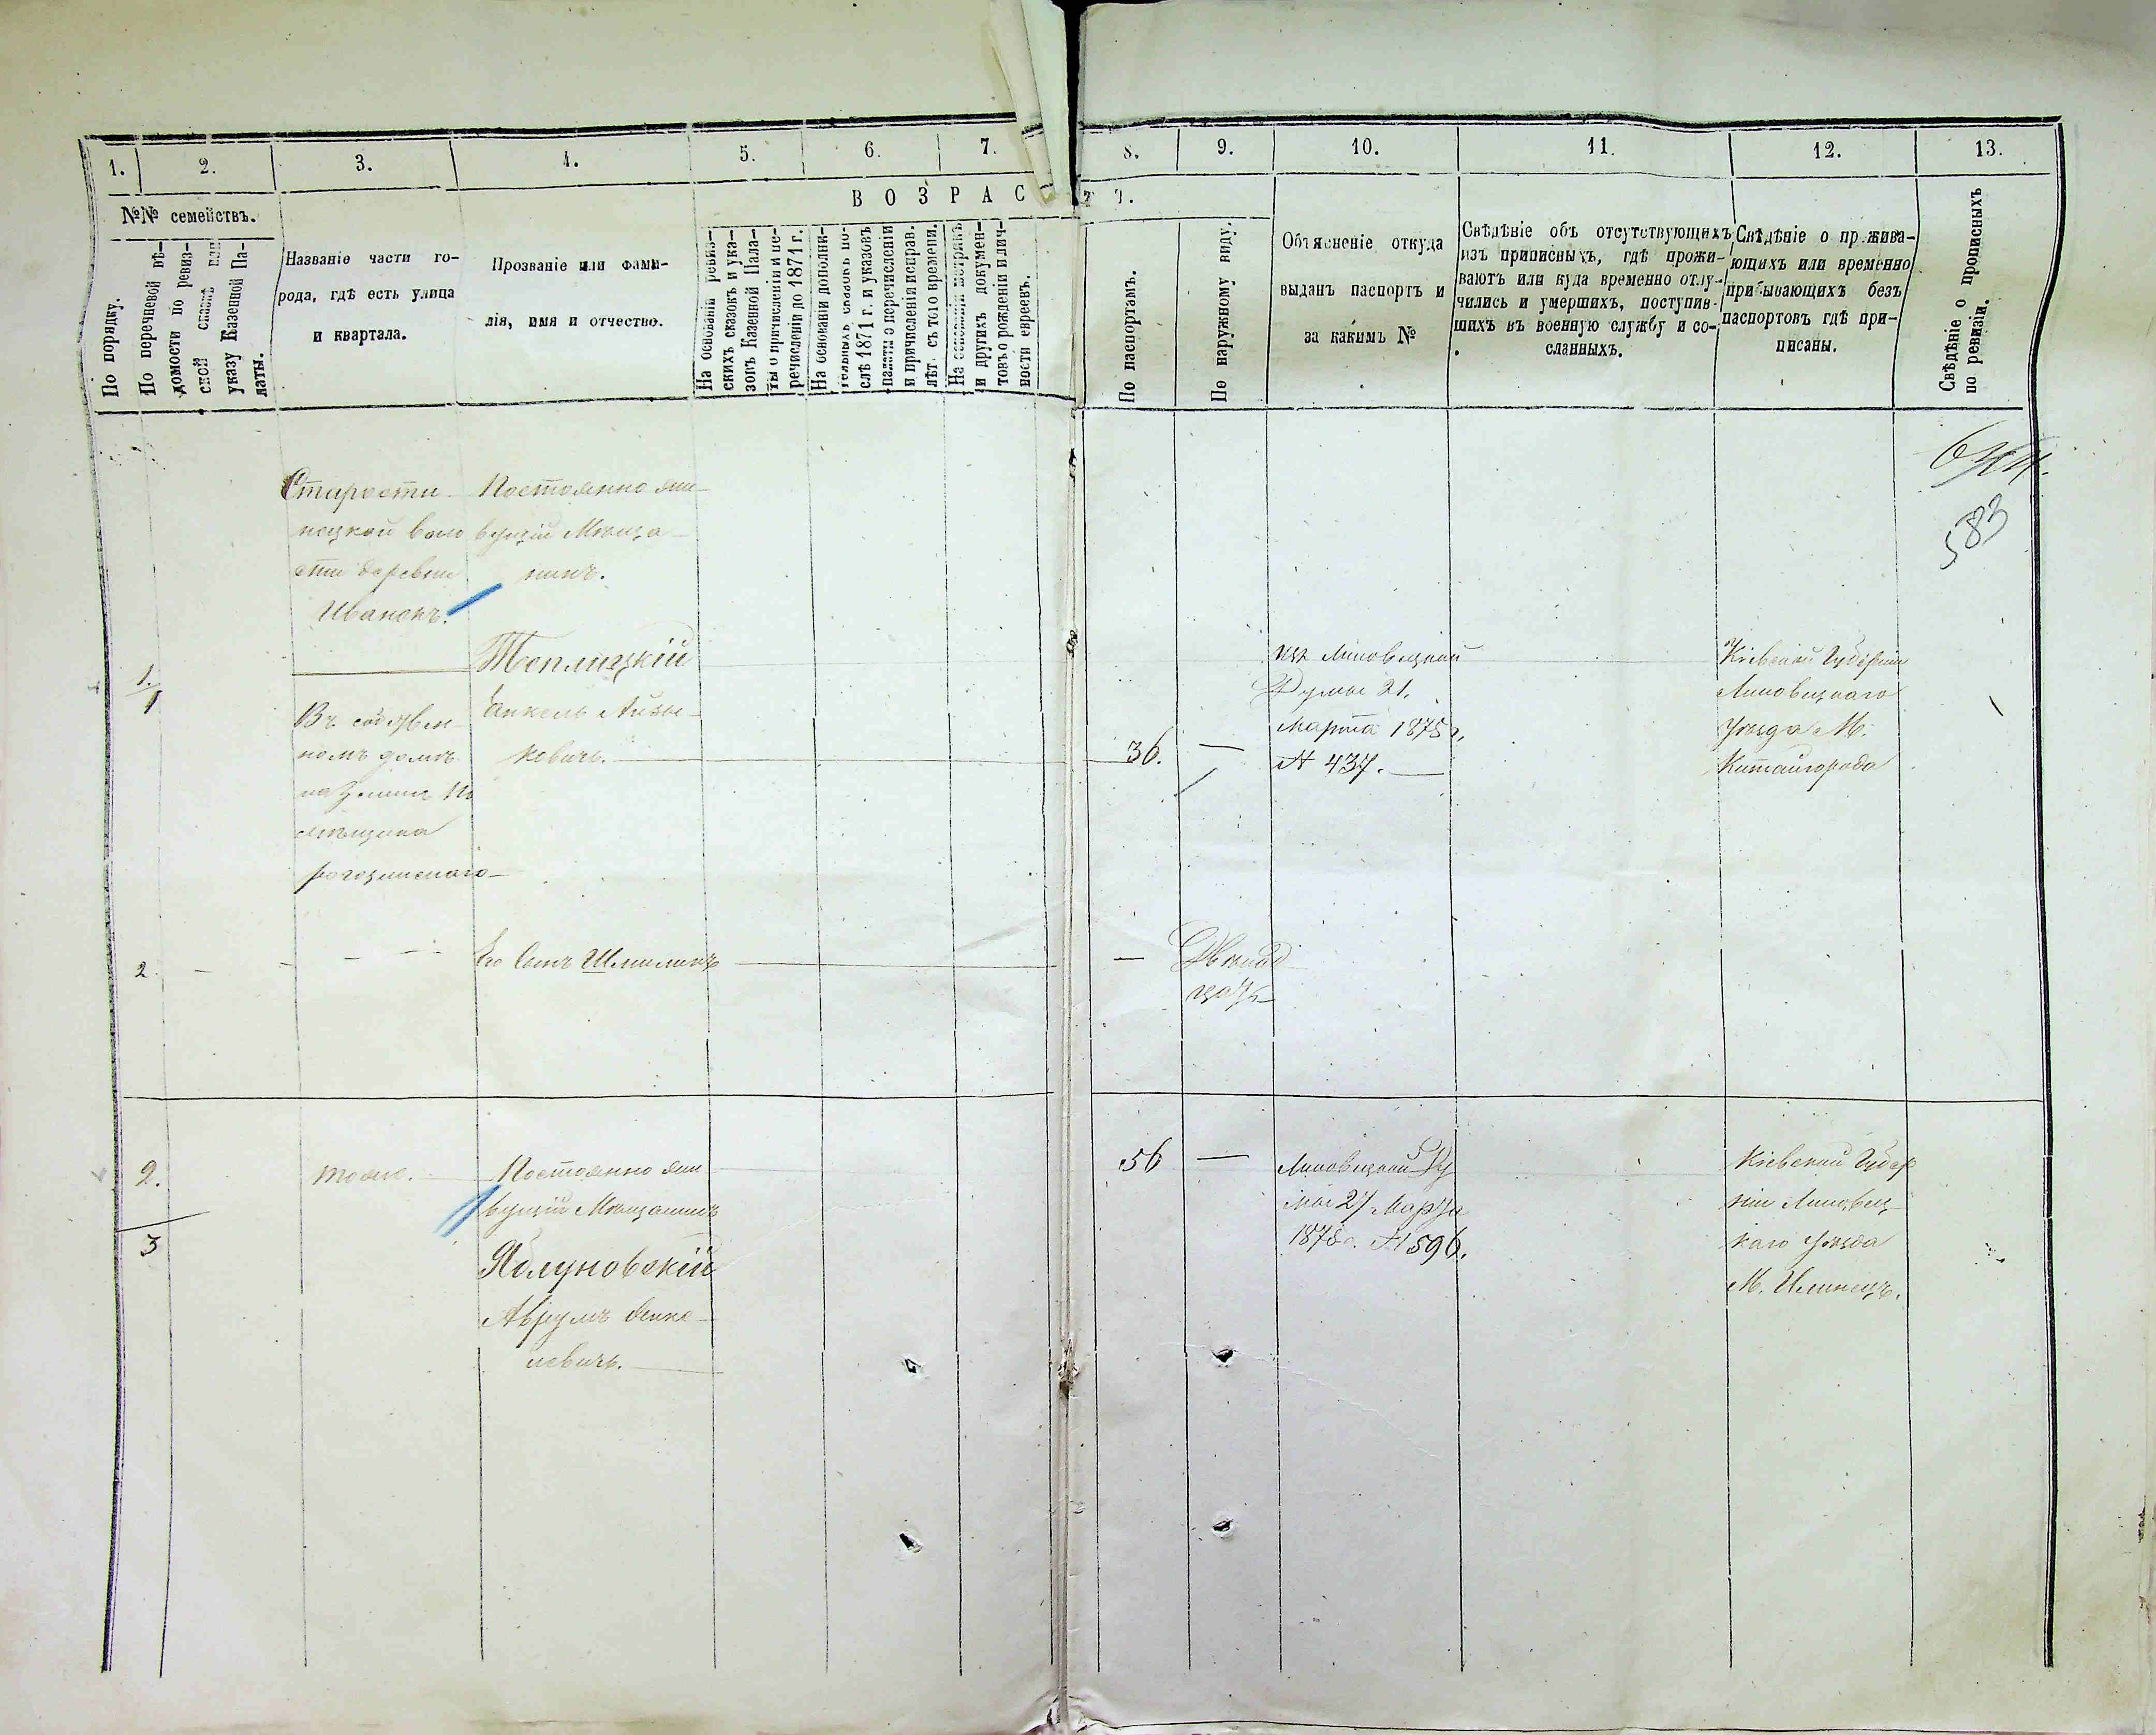 1.
2.
3.
4.
5.
6.
7.
8.
9.
10.
11.
12.
13.
№№ семействъ.
По порядку.
По перечневой вѣ-
домости по ревиз-
ской сказкѣ или
указу Казенной Па-
латы.
Названіе части го-
рода, гдѣ есть улица
и квартала.
Прозваніе или фами-
лія, имя и отчество.
ВОЗРАСТ
На основаніи ревиз-
скихъ сказокъ и ука-
зовъ Казенной Пала-
ты о причисленіи и пе-
речисленіи до 1871 г.
На основаніи дополни-
тельныхъ сказокъ по-
слѣ 1871 г. и указовъ
палаты о перечисленіи
и причисленіи исправ.
лѣт. съ того времени.
На основаніи метрикъ
и другихъ докумен-
товъ о рожденіи и лич-
ности евреевъ.
По паспортамъ.
По наружному виду.
Объясненіе откуда
выданъ паспортъ и
за какимъ №
Свѣдѣніе объ отсутствующихъ
изъ приписныхъ, гдѣ прожи-
ваютъ или куда временно отлу-
чились и умершихъ, поступив-
шихъ въ военную службу и со-
сланныхъ.
Свѣдѣніе о прожива-
ющихъ или временно
прибывающихъ безъ
паспортовъ гдѣ при-
писаны.
Свѣдѣніе о прописныхъ
по ревизіи.
583
Старости-
нецкой воло
сти деревни
Иванекъ.
Постоянно жи-
вущій Мѣща-
нинъ.
1.
1
Теплицкій
Янкель
ковичъ.
Въ собствен-
номъ домѣ
на Земли По
мѣщика
рогозинскаго
36.
изъ Липовецкой
Думы 21.
Марта 1875 г.
№ 437.
Кіевской Губерніи
Липовецкаго
уѣзда М.
Китайгорода
2
Его Сынъ Шмиликъ
Двѣнад
цать
2.
3
тоже.
Постоянно жи
вущій Мѣщанинъ
Яблуновскій
Аврумъ Янке-
левичъ.
56
Липовецкой Ду
мы 27 Марта
1875 г. № 596.
Кіевской Губер
ніи Липовец-
каго Уѣзда
М. Илинецъ.